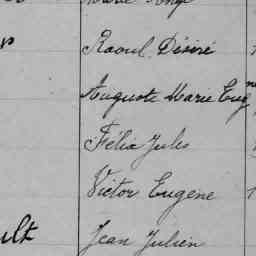 Raoul Désiré
Auguste Marie Eug
Félix Jules
Victor Eugène
ult Jean Julien